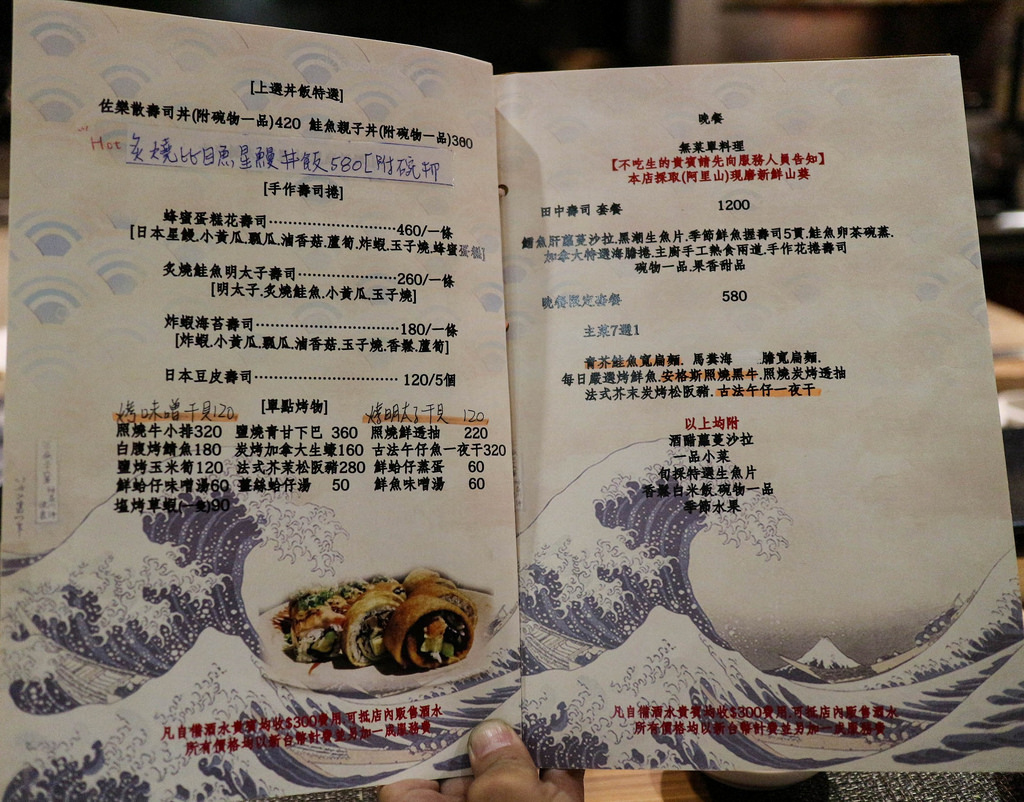 [上選丼飯特選]
佐樂散壽司丼(附碗物一品)420 鮭魚親子丼(附碗物一品)380
Hot 炙燒比目魚星鰻丼飯 580[附碗物
[手作壽司捲]
蜂蜜蛋糕花壽司 460/一條
[日本星鰻.小黃瓜.瓢瓜.滷香菇.蘆筍.炸蝦.玉子燒.蜂蜜蛋糕]
炙燒鮭魚明太子壽司 260/一條
[明太子.炙燒鮭魚.小黃瓜.玉子燒]
炸蝦海苔壽司 180/一條
[炸蝦.小黃瓜.瓢瓜.滷香菇.玉子燒.香鬆.蘆筍]
日本豆皮壽司 120/5個
烤味噌干貝120 [單點烤物] 烤明太子干貝 120
照燒牛小排320 鹽燒青甘下巴 360 照燒鮮透抽 220
白腹烤鯖魚180 炭烤加拿大生蠔160 古法午仔魚一夜干320
鹽烤玉米筍120 法式芥茉松阪豬280 鮮蛤仔蒸蛋 60
鮮蛤仔味噌湯60 薑絲蛤仔湯 50 鮮魚味噌湯 60
塩烤草蝦(一隻)90
凡自備酒水貴賓均收$300費用.可抵店內販售酒水
所有價格均以新台幣計費並另加一成服務費
晚餐
無菜單料理
【不吃生的貴賓請先向服務人員告知】
本店採取(阿里山)現磨新鮮山葵
田中壽司 套餐 1200
魚肝蘿蔓沙拉.黑潮生魚片.季節鮮魚握壽司5貫.鮭魚卵茶碗蒸.
加拿大特選海膽捲.主廚手工熱食兩道.手作花捲壽司
碗物一品.果香甜品
晚餐限定套餐 580
主菜7選1
青芥鮭魚寬扁麵. 馬糞海 膽寬扁麵.
每日嚴選烤鮮魚.安格斯照燒黑牛.照燒炭烤透抽
法式芥末炭烤松阪豬.古法午仔一夜干
以上均附
酒醋蘿蔓沙拉
一品小菜
旬採特選生魚片
香鬆白米飯.碗物一品
季節水果
凡自備酒水貴賓均收$300費用.可抵店內販售酒水
所有價格均以新台幣計費並另加一成服務費